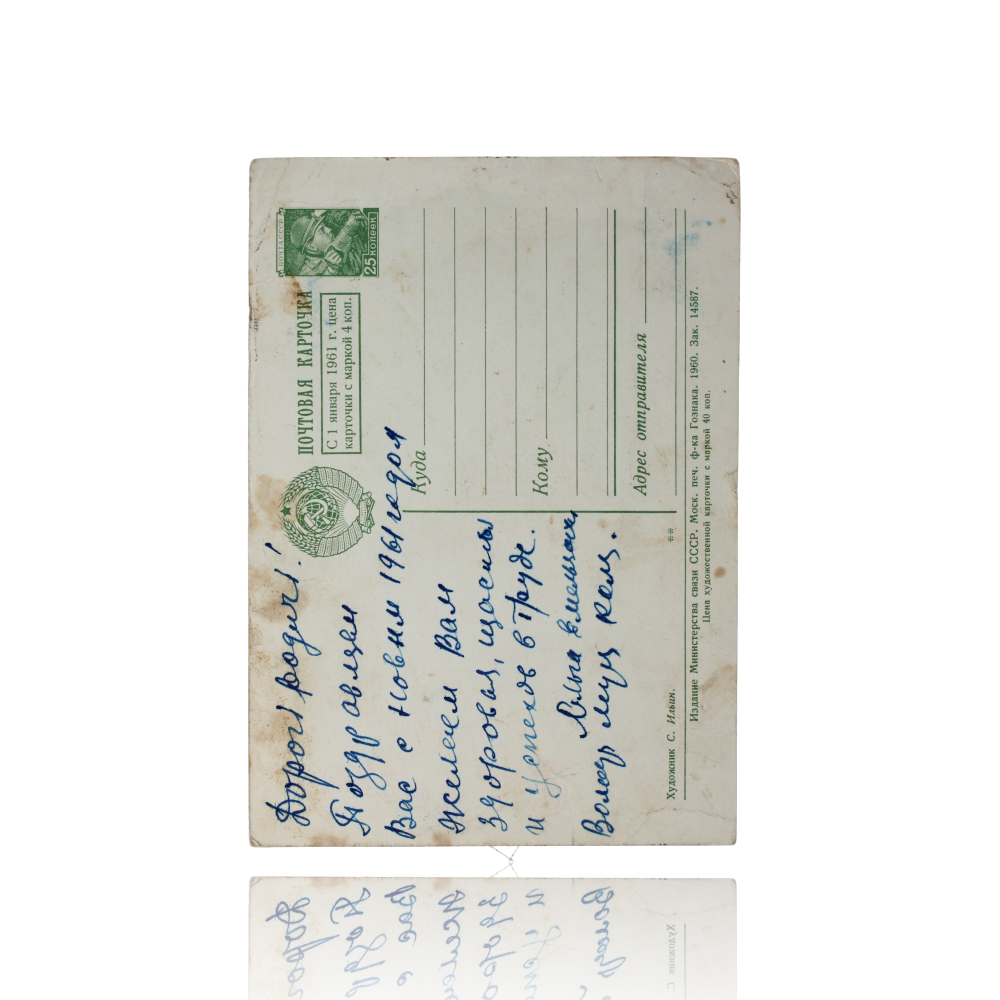 Дорогі родичі!
Поздравляєм
Вас с Новым 1961 годом
Желаем Вам
здоровья, щастья
и успехов в труде.
ПОЧТОВАЯ КАРТОЧКА
С 1 января 1961 г. цена
карточки с маркой 4 коп.
ПОЧТА СССР
25 копеек
Куда
Кому
Адрес отправителя
Художник С. Ильин.
Издание Министерства связи СССР. Моск. печ. ф-ка Гознака. 1960. Зак. 14587.
Цена художественной карточки с маркой 40 коп.